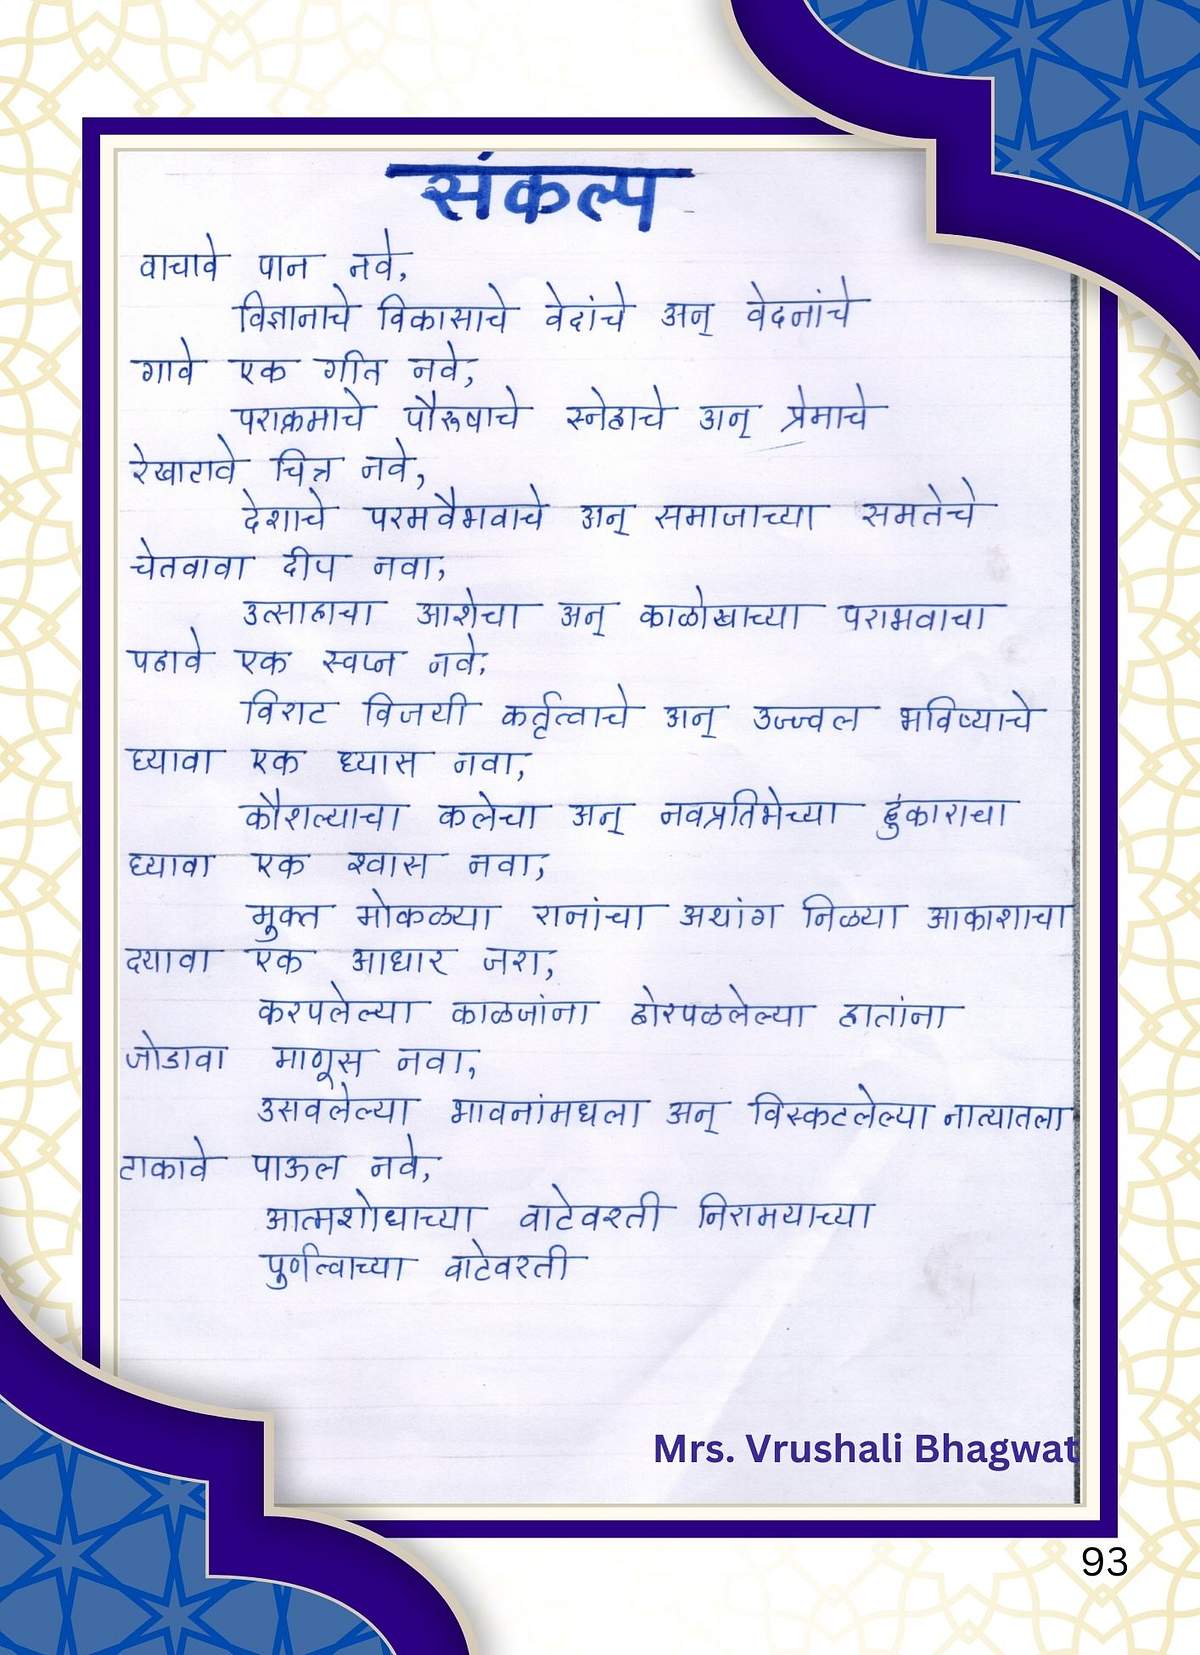 संकल्प
वाचावे पान नवे,
विज्ञानाचे विकासाचे वेदांचे अन् वेदनांचे
गावे एक गीत नवे,
पराक्रमाचे पौरूषाचे स्नेहाचे अन् प्रेमाचे
रेखाटावे चित्र नवे,
देशाचे परमवैभवाचे अन् समाजाच्या समतेचे
चेतवावा दीप नवा,
उत्साहाचा आशेचा अन् काळोखाच्या पराभवाचा
पहावे एक स्वप्न नवे,
विराट विजयी कर्तृत्वाचे अन् उज्ज्वल भविष्याचे
घ्यावा एक ध्यास नवा,
कौशल्याचा कलेचा अन् नवप्रतिभेच्या हुंकाराचा
घ्यावा एक श्वास नवा,
मुक्त मोकळ्या रानांचा अथांग निळ्या आकाशाचा
दयावा एक आधार जरा,
करपलेल्या काळजांना होरपळलेल्या हातांना
जोडावा माणूस नवा,
उसवलेल्या भावनांमधला अन् विस्कटलेल्या नात्यातला
टाकावे पाऊल नवे,
आत्मशोधाच्या वाटेवरती निरामयाच्या
पुर्णत्वाच्या वाटेवरती
Mrs. Vrushali Bhagwat
93